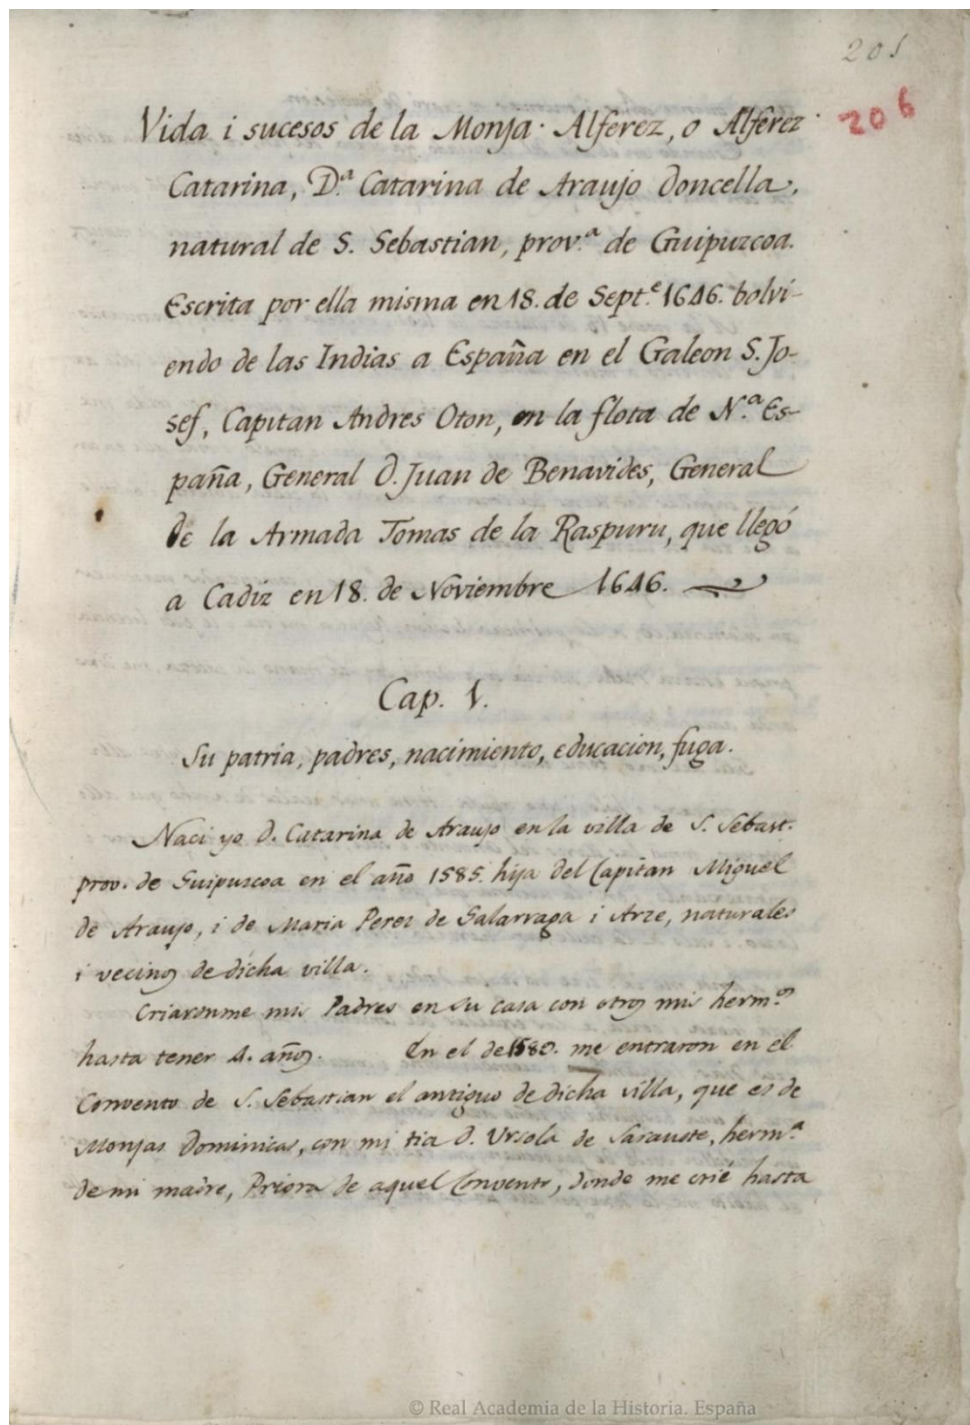 201
206
Vida i sucesos de la Monja Alferez, o Alferez
Catarina, D.ª Catarina de Araujo doncella,
natural de S. Sebastian, prov.ª de Guipuzcoa.
Escrita por ella misma en 18. de Sept.e 1646. bolvi-
endo de las Indias a España en el Galeon S. Jo-
sef, Capitan Andres Oton, en la flota de N.ª Es-
paña, General D. Juan de Benavides, General
de la Armada Tomas de la Raspuru, que llegó
a Cadiz en 18. de Noviembre 1646.
Cap. 1.
Su patria, padres, nacimiento, educacion, fuga.
Naci yo d. Catarina de Araujo en la villa de S. Sebast.
prov. de Guipuscoa en el año 1585. hija del Capitan Miguel
de Araujo, i de Maria Perez de Galarraga i Arze, naturales
i vecinos de dicha villa.
Criaronme mis Padres en su casa con otros mis herm.os
hasta tener 4. años. En el de 1580. me entraron en el
Convento de S. Sebastian el antiguo de dicha villa, que es de
Monjas Dominicas, con mi tia d. Ursola de Sarauste, herm.ª
de mi madre, Priora de aquel Convento, donde me crié hasta
© Real Academia de la Historia. España